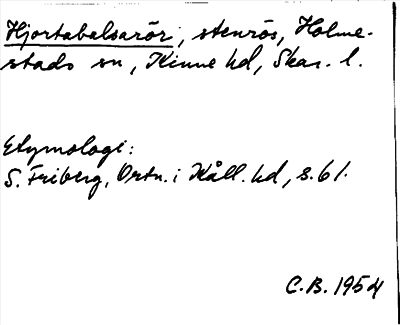 Hjortabalsarör, stenrös, Holme-
stads sn, Kinne hd, Skar. l.
Etymologi:
S. Friberg, Ortn. i Kåll. hd, s. 61.
C.B. 1954